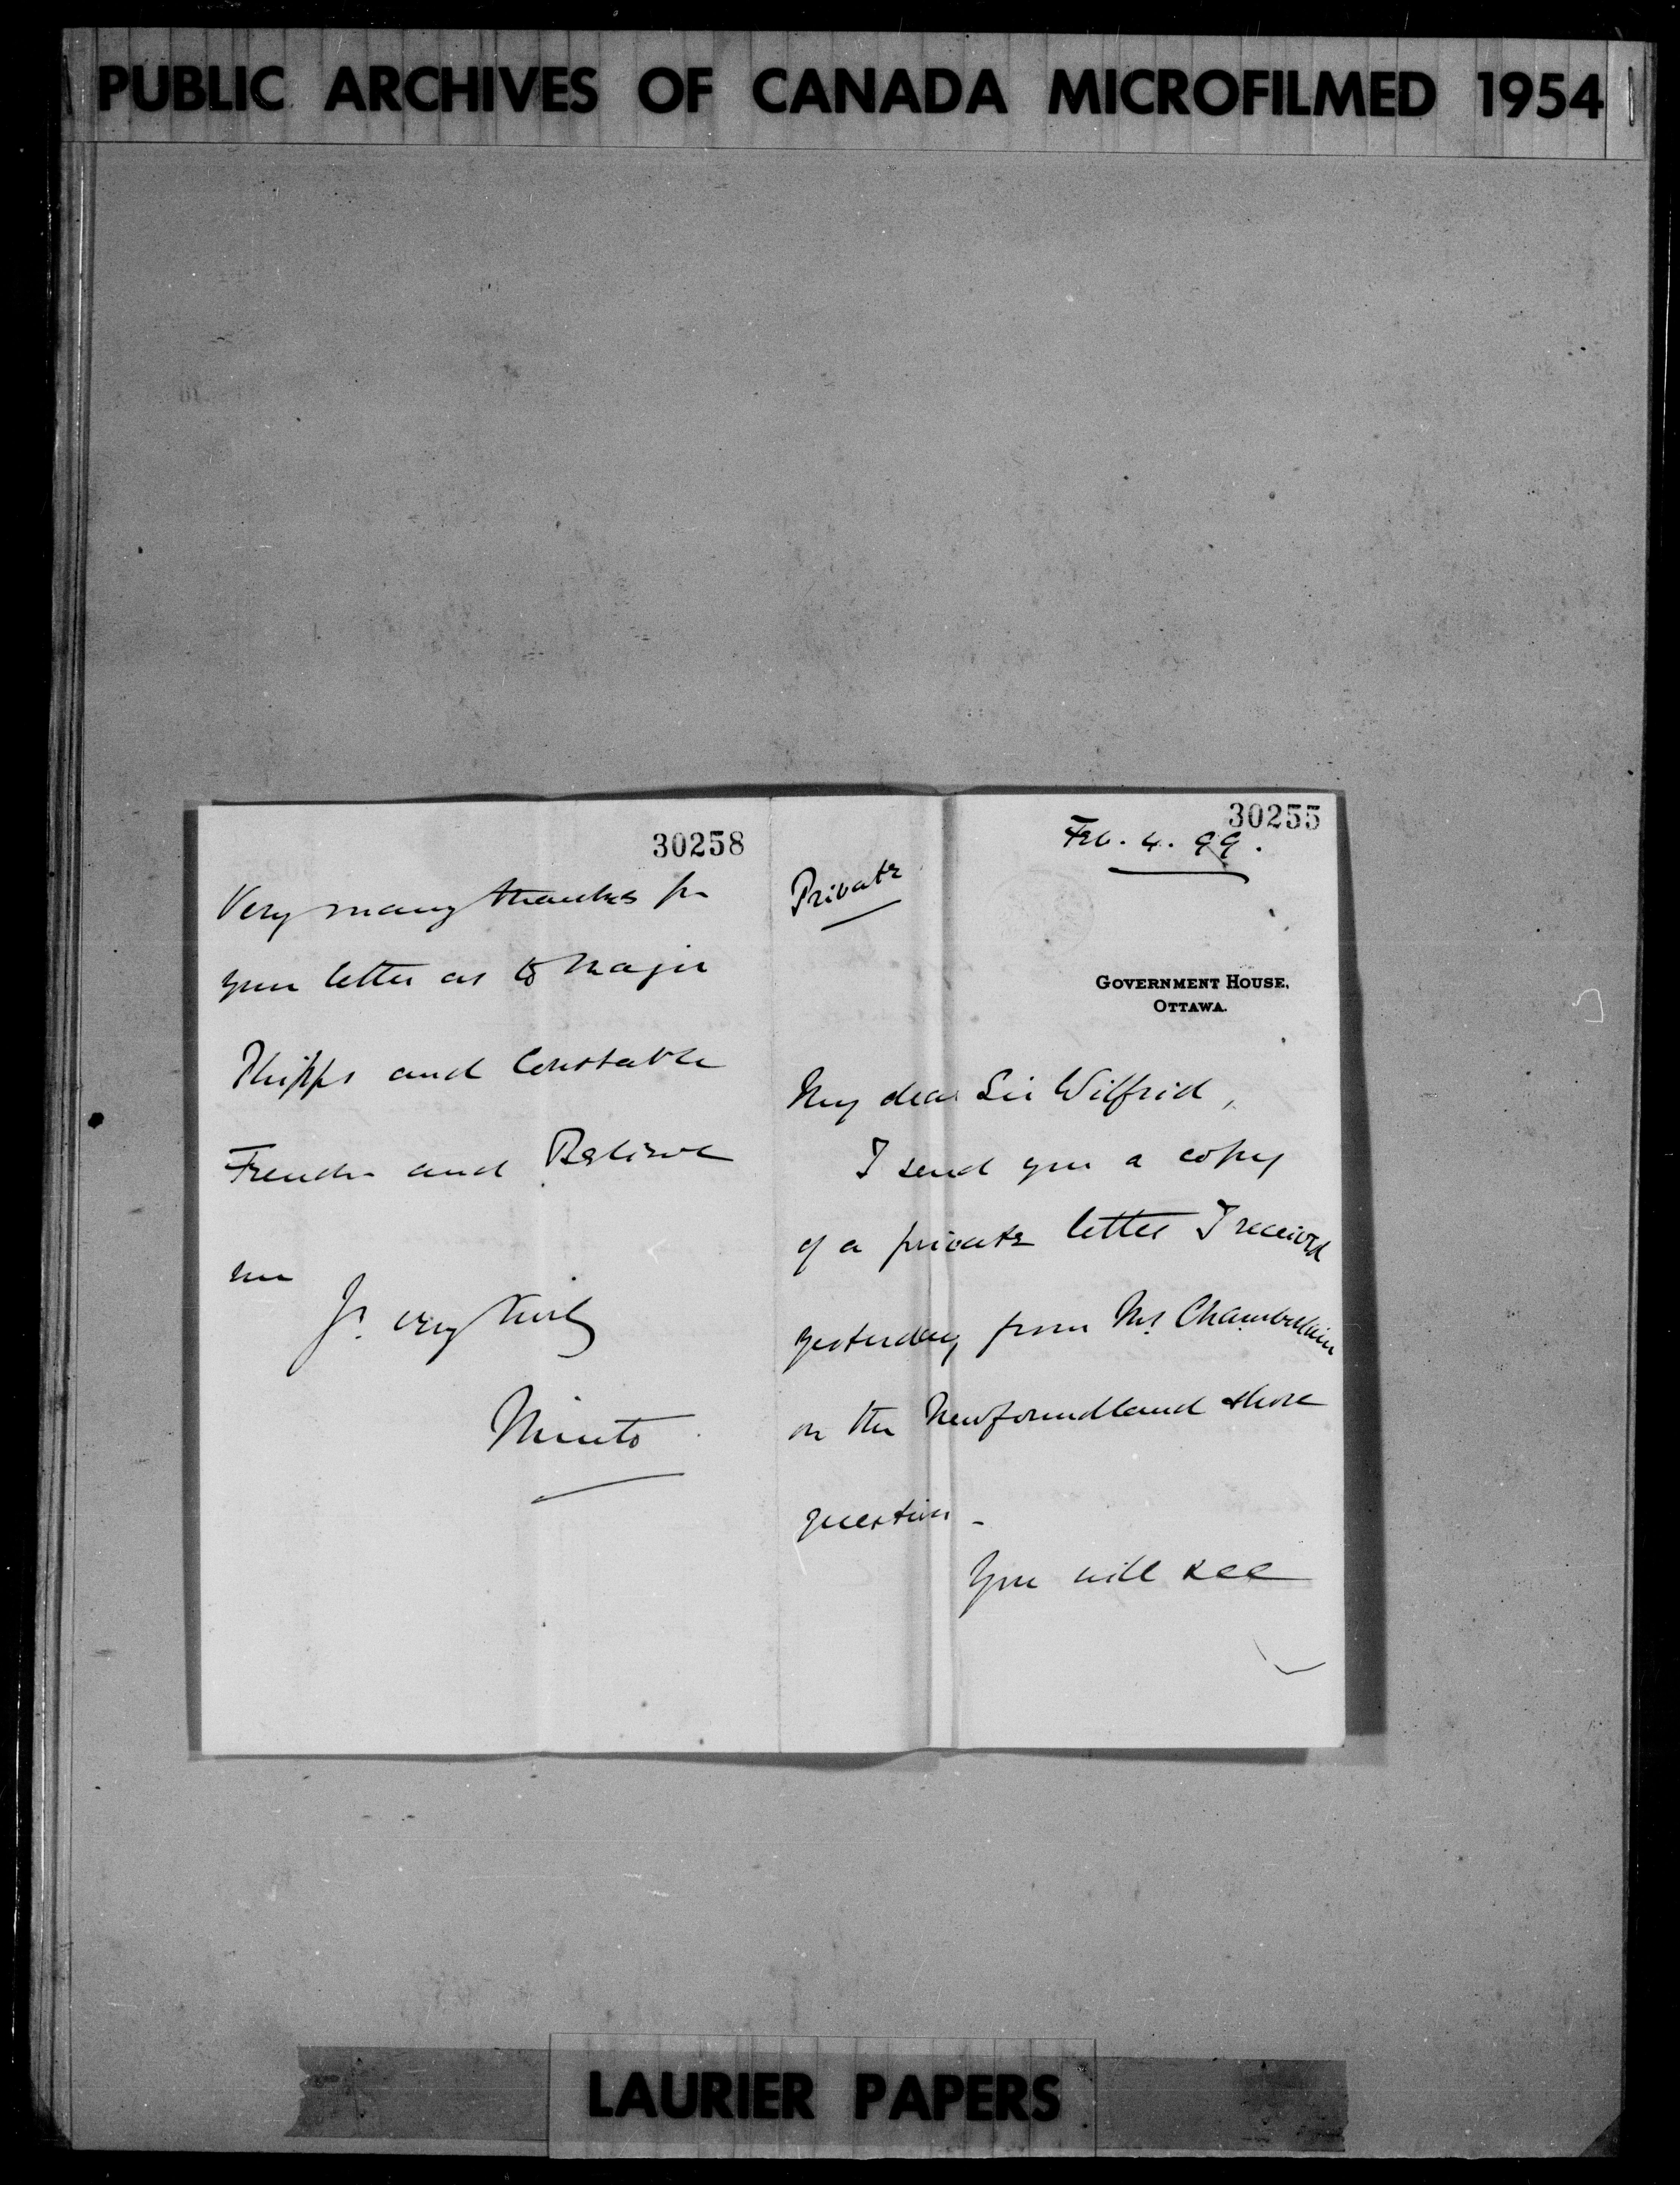 PUBLIC ARCHIVES OF CANADA MICROFILMED 1954
30258
Very many thanks for
your letter as to Major
Phipps and Constable
French and Believe
me
Yr. very truly
Minto
30255
Feb. 4. 99.
Private
GOVERNMENT HOUSE,
OTTAWA.
My dear Sir Wilfrid,
I send you a copy
of a private letter I received
yesterday from Mr. Chamberlain
on the Newfoundland shore
question -
You will see
LAURIER PAPERS